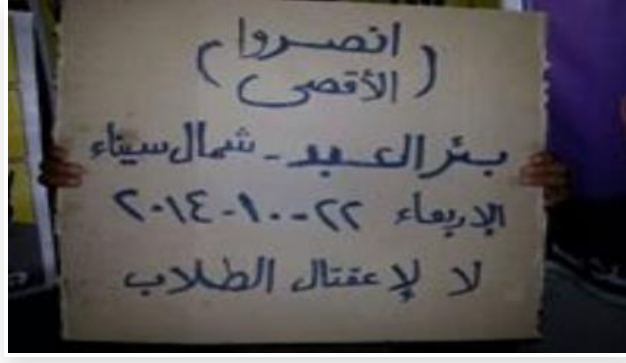 انصروا
(الأقصى)
بئر العبد - شمال سيناء
الإربعاء ٢٢-١٠-٢٠١٤
لا لإعتقال الطلاب